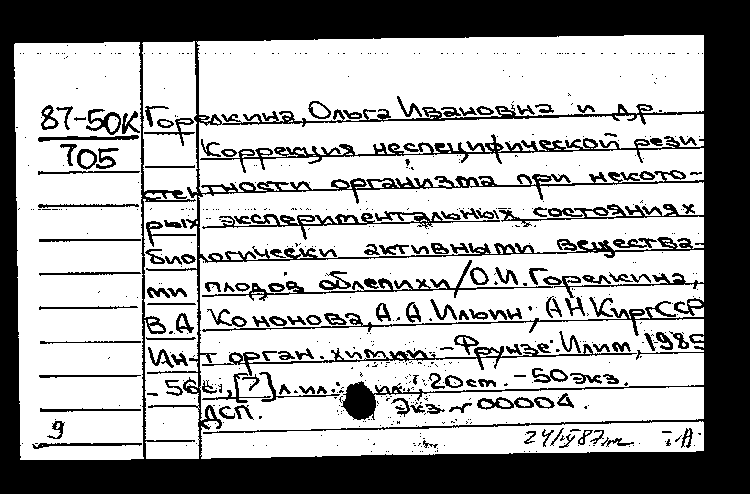 87-50К Горелкина, Ольга Ивановна и др.
705 Коррекция неспецифической рези-
стентности организма при некото-
рых экспериментальных состояниях
биологически активными вещества-
ми плодов облепихи/О.И.Горелкина,
В.А Кононова, А.А.Ильин; АН КиргССР
Ин-т орган. химии. - Фрунзе: Илим, 1985
- 56с., [7] л.ил.: ил.; 20см. - 50экз.
ДСП. Экз. № 00004.
9